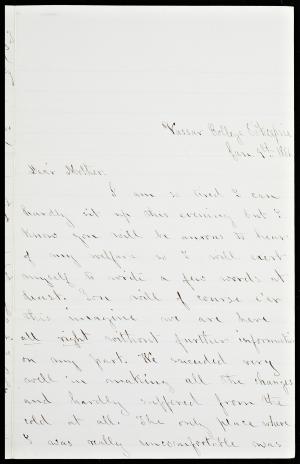 Vassar College
Jan 9th
Dear Mother.
I am so tired I can
hardly sit up this evening but I
know you will be anxious to hear
of my welfare so I will exert
myself to write a few words at
least. You will of course e'er
this imagine we are here
all right without further information
on my part. We succeeded very
well in making all the changes
and hardly suffered from the
cold at all. The only place where
I was really uncomfortable was